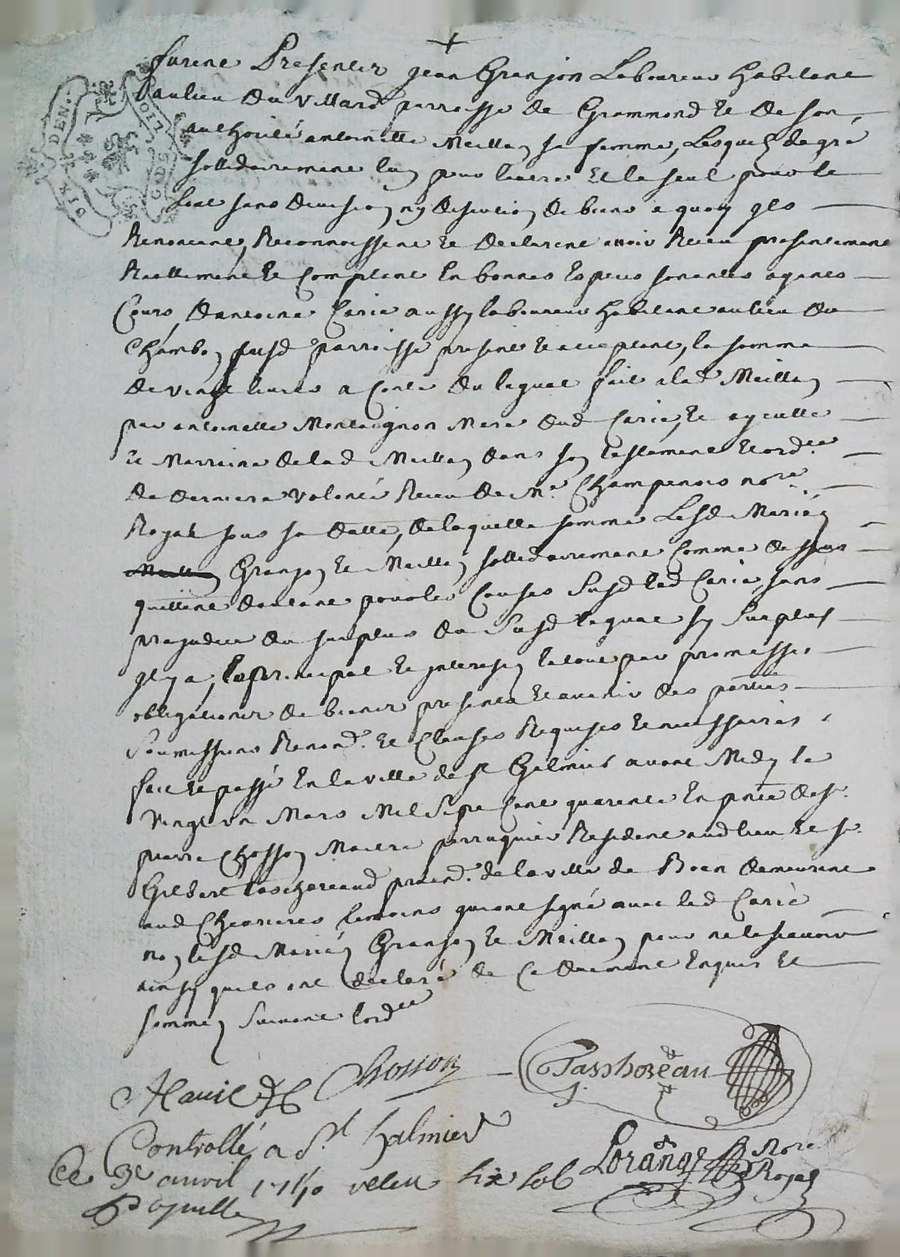 furent Presents jean Granjon Laboureur habitant
au lieu du villard parroisse de Grammond et de son
authorité antoinette Meillon sa femme, Lesquels de gré
sollidairement lun pour lautre Et le seul pour le
tout sans division ny discution de biens a quoy ils
Renoncent, Reconnoissent et declarent avoir Receu presentement
Reellement et Comptent En bonnes Especes sonantes ayants
Cours, Dantoine Carié aussy laboureur habitant au lieu du
Chambon susd parroisse present et acceptant, la somme
de vingt livres a Conte du legat fait a lad Meillon
par antoinette Montaignon Mere dud Carié, et ayeulle
et Marreine de lad Meillon dans son testament et ord.ce
de derniere volonté Receu de Me Champenois nore
Royal sous sa datte, de laquelle somme Lesd Mariés
Granjon et Meillon sollidairement Comme dessus
quittent dautant pour les Causes susd led Carié, sans
prejudice du surplus du susd legat sy surplus
il y a, tant principal et interest le tout par promesses
obligations de biens presents et avenir des parties
Soumissions Renond. et Clauses Requises et necessaires
fait et passé En la ville de St Galmier avant Midy le
Vingt un Mars Mil Sept Cent quarente En pnce de sr
pierre Chosson Maitre perruquier Resident aud lieu et sr
Gilbert taschereaud de la ville de Boen demeurant
aud Chevrieres temoins qui ont signé avec led Carié
non lesd Mariés Granjon et Meillon pour ne le scavoir
ainsy quils ont declaré de Ce duement Enquis Et
sommés suivant lord.ce
Chosson Tasshoreau
Controllé a St Galmier Lorange Nore
Ce 3e avril 1740 Receu six sols Royal